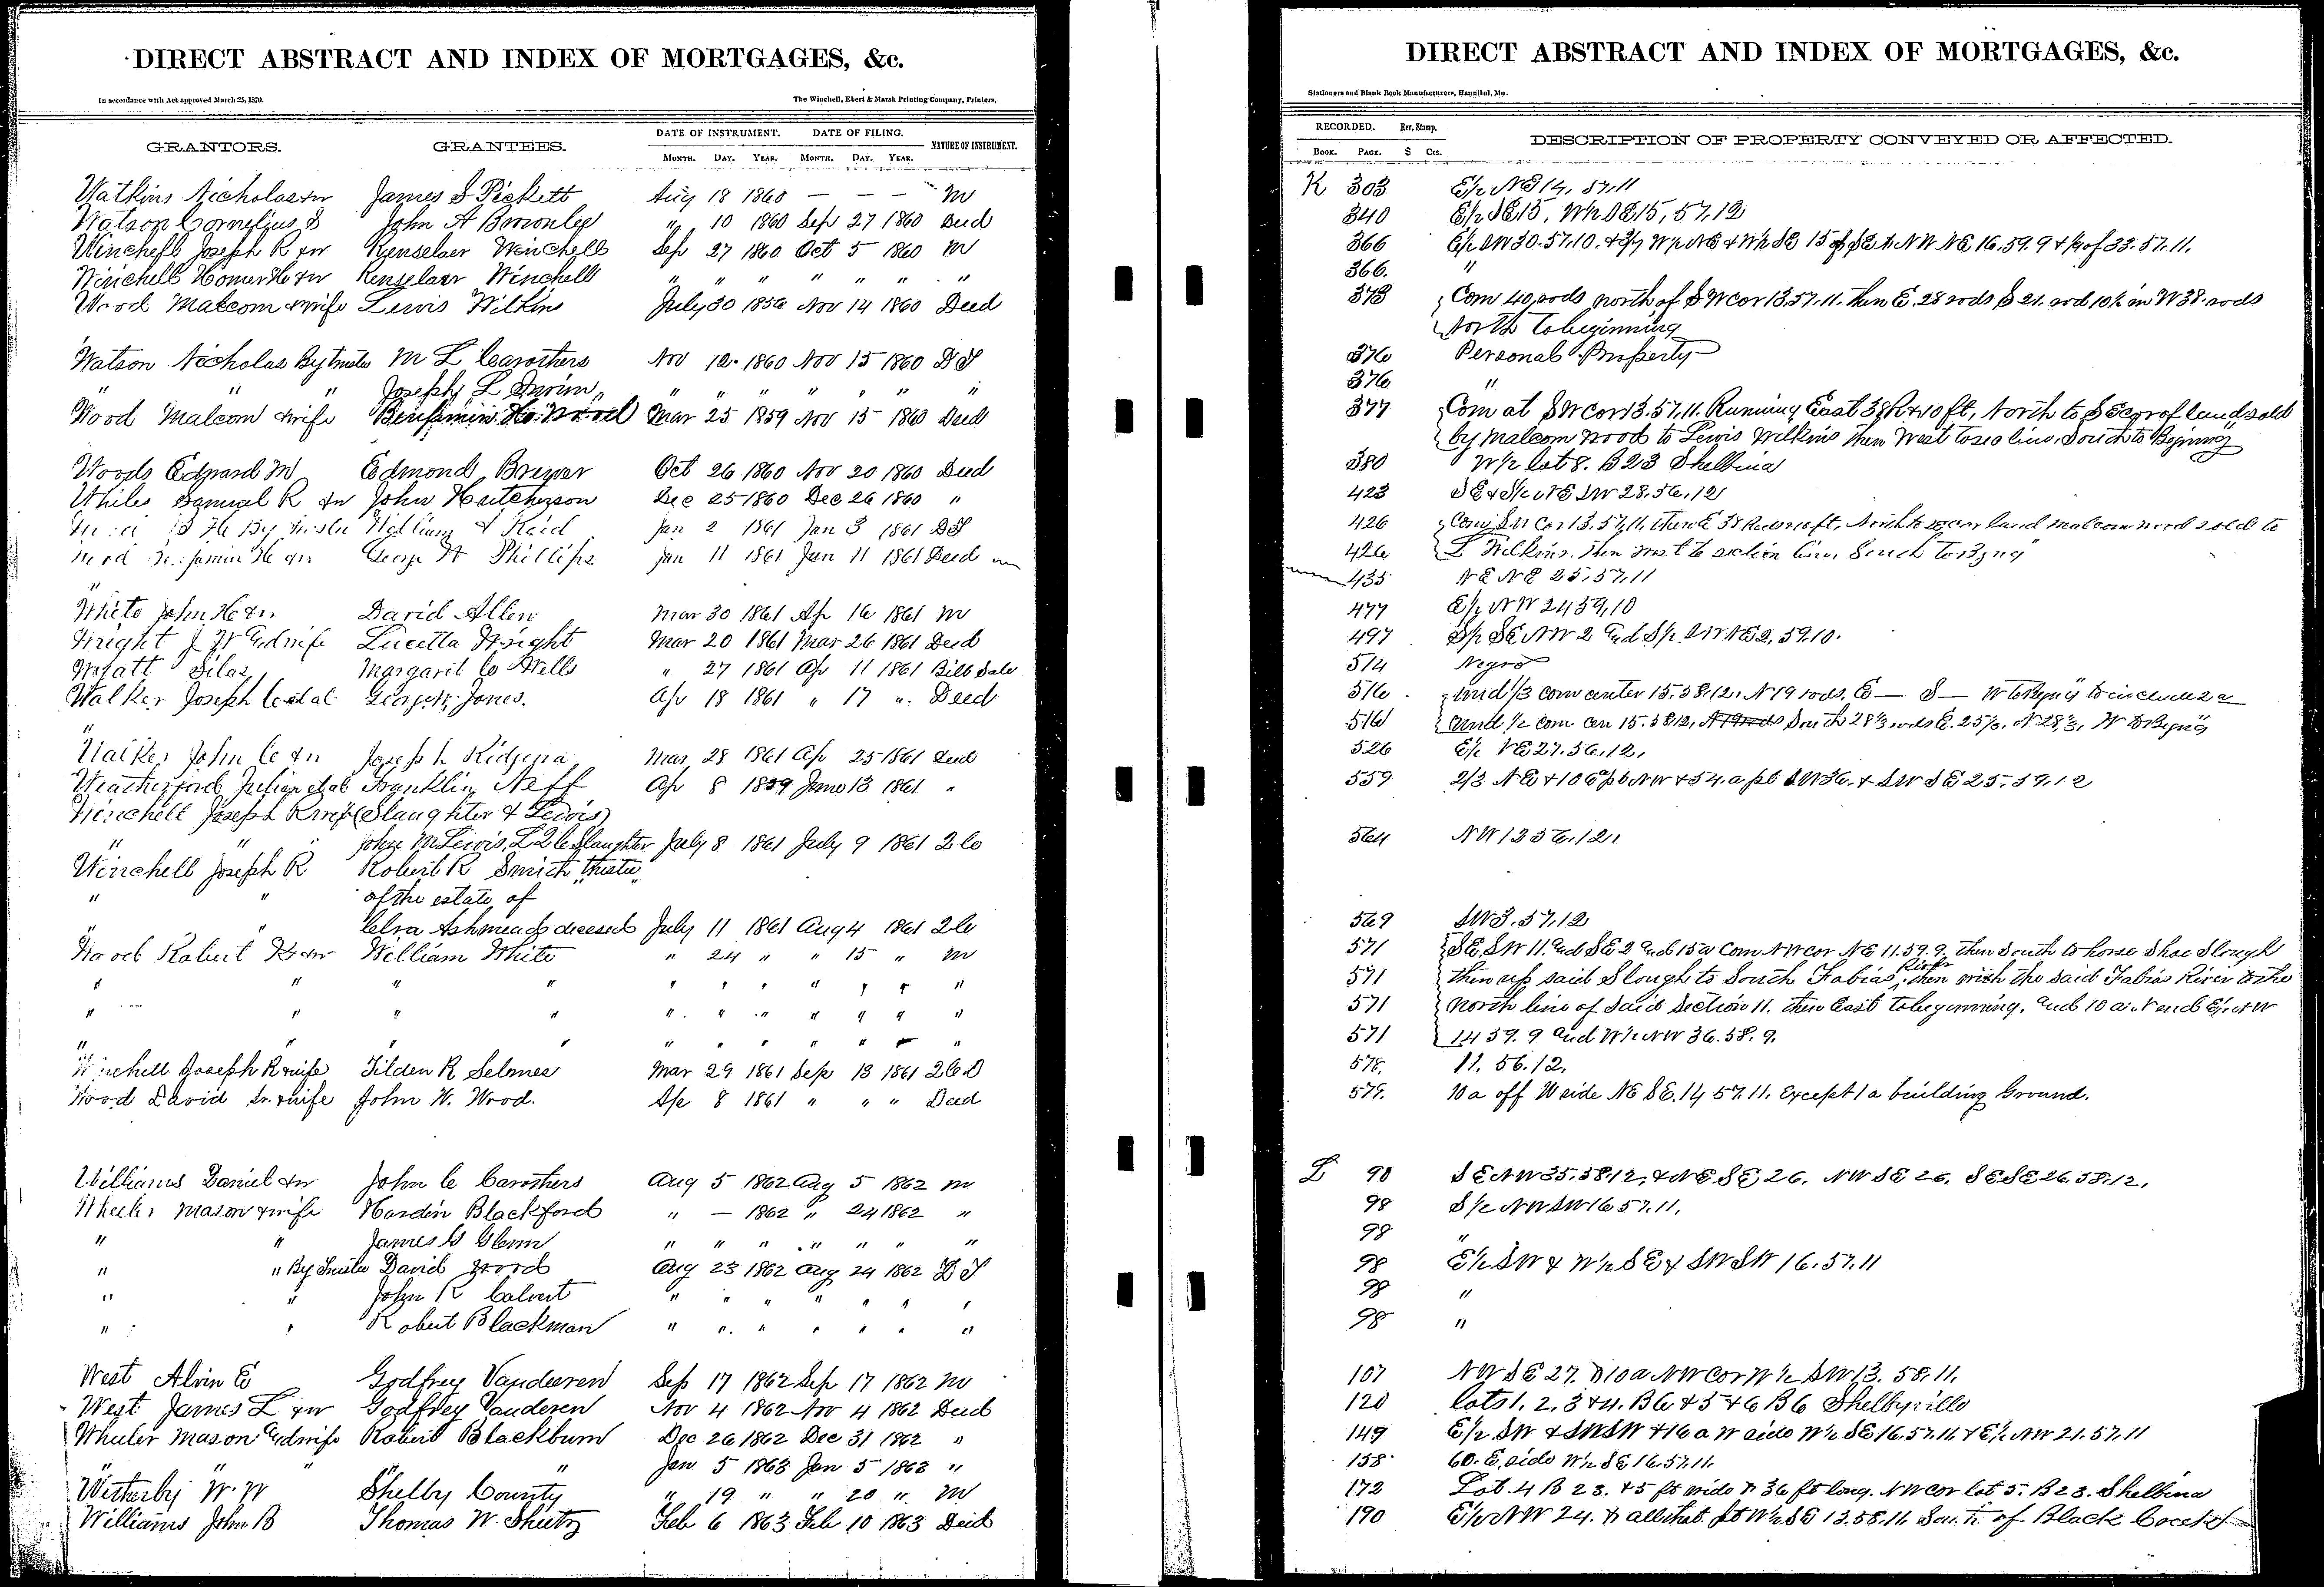 DIRECT ABSTRACT AND INDEX OF MORTGAGES, &c.
In accordance with Act approved March 25, 1870. The Winchell, Ebert & Marsh Printing Company, Printers,
GRANTORS. GRANTEES. DATE OF INSTRUMENT. DATE OF FILING. NATURE OF INSTRUMENT.
MONTH. DAY. YEAR. MONTH. DAY. YEAR.
Watkins Nicholas & w James S Pickett Aug 18 1860 — — — M
Watson Cornelius S John A Brownlee " 10 1860 Sep 27 1860 Deed
Winchell Joseph R & w Renselaer Winchell Sep 27 1860 Oct 5 1860 M
Winchell Homer H & w Renselaer Winchell " " " " " . "
Wood Malcom & wife Lewis Wilkins July 30 1856 Nov 14 1860 Deed
Watson Nicholas By trustee M L Carothers Nov 12. 1860 Nov 15 1860 D T
" " " Joseph L " " " " " " "
Wood Malcom & wife Benjamin H. Wood Mar 25 1859 Nov 15 1860 Deed
Woods Edward M Edmond Brewer Oct 26 1860 Nov 20 1860 Deed
While Samuel R & w John Hutcherson Dec 25 1860 Dec 26 1860 "
B H By trustee William Reid Jan 2 1861 Jan 3 1861 D T
Benjamin H & w George W Phillips Jan 11 1861 Jan 11 1861 Deed
"
White John H & w David Allen Mar 30 1861 Ap 16 1861 M
Wright J W and wife Lucetta Wright Mar 20 1861 Mar 26 1861 Deed
Wyatt Silas Margaret C Wells " 27 1861 Ap 11 1861 Bill Sale
Walker Joseph C et al George Jones. Ap 18 1861 " 17 ". Deed
"
Walker John C & w Joseph Mar 28 1861 Ap 25 1861 Deed
Weatherford Julian et al Franklin Neff Ap 8 1859 June 13 1861 "
Winchell Joseph R wife (Slaughter & Lewis)
" " John M Lewis, Slaughter July 8 1861 July 9 1861 2 C
Winchell Joseph R Robert R Smith trustee
" " of the estate of
" Ashmead deceased July 11 1861 Aug 4 1861 2 C
Wood Robert & w William White " 24 " " 15 " M
" " " " " " " " " " "
" " " " " " " " " " "
" " " " " " " " " "
Winchell Joseph R wife Tilden R Selmes Mar 29 1861 Sep 13 1861 2 C D
Wood David Sr. & wife John W. Wood. Ap 8 1861 " " " Deed
Williams Daniel & w John C Carothers Aug 5 1862 Aug 5 1862 M
Wheeler Mason & wife Hardin Blackford " — 1862 " 24 1862 "
" " James G Glenn " " " " " " "
" " By Trustee David Wood Aug 23 1862 Aug 24 1862 D T
" " John R Calvert " " " " " " "
" " Robert Blackman " " " " " " "
West Alvin E Godfrey Vanderen Sep 17 1862 Sep 17 1862 M
West James L & w Godfrey Vanderen Nov 4 1862 Nov 4 1862 Deed
Wheeler Mason and wife Robert Blackburn Dec 26 1862 Dec 31 1862 "
" " " Jan 5 1863 Jan 5 1863 "
Witherby W. W Shelby County " 19 " " 20 ". M
Williams John B Thomas W. Sheetz Feb 6 1863 Feb 10 1863 Deed
DIRECT ABSTRACT AND INDEX OF MORTGAGES, &c.
Stationers and Blank Book Manufacturers, Hannibal, Mo.
RECORDED. Rev. Stamp. DESCRIPTION OF PROPERTY CONVEYED OR AFFECTED.
BOOK. PAGE. $ CTS.
K 303 E½ NE 14, 57, 11
340 E½ SE 15, W½ SE 15, 57, 12
366 E½ SW 30. 57. 10. W½ NE & W½ SE 15 NW NE 16. 59. 9 & ½ of 33. 57. 11.
366. "
373 Com 40 rods north of SW cor 13. 57. 11. then E. 28 rods S 21. rod 10½ in W 38. rods
North to beginning
376 Personal Property
376 "
377 Com at SW cor 13. 57. 11. Running East 38 R & 10 ft, North to S E cor of land sold
by Malcom Wood to Lewis Wilkins then West to sec line. South to Begining
380 W½ lot 8. B 23 Shelbina
423 SE & S½ NE SW 28. 56. 12
426 Com SW cor 13. 57. 11, then E 38 Rods ft, North to se cor land Malcom Wood sold to
426 L Wilkins. then west to section line South to Bgng
435 NE NE 25. 57. 11
477 E½ NW 24 59, 10
497 S½ SE NW 2 and S½ SW NE 2, 59. 10.
514 Negro
516 und ⅓ com center 15. 58. 12. N 19 rods. E — S — W to Bgng to include 2 a
516 und ½ com cen 15. 58 12, N 19 rods South 28⅓ rods E. N 28⅓, W to Bgng
526 E½ NE 27. 56. 12.
559 2/3 NE & 106 pt NW & 54. a pt SW 36. & SW SE 25. 57. 12
564 NW 13 56. 12.
569 SW 3. 57. 12
571 SE, SW 11. and SE 2 and 15 a Com NW cor NE 11. 59. 9. then South to horse Shoe Slough
571 then up said Slough to South Fabias River, then with the said Fabias River to the
571 North line of said Section 11. then East to beginning. and 10 a N end E½ NW
571 14 59. 9 and W½ NW 36. 58. 9.
578. 11. 56. 12.
579. 10 a off W side NE SE. 14 57. 11. Except 1 a building Ground.
L 90 SE NW 35. 58. 12. & NE SE, 26. NW SE 26. SE SE 26. 58. 12.
98 S½ NW SW 16 57. 11.
98 "
98 E½ SW & W½ SE & SW SW 16. 57. 11
98 "
98 "
107 NW SE 27. & 10 a NW Cor W½ SW 13. 58. 11.
120 lots 1. 2. 3 & 4. B 6 & 5 & 6 B 6 Shelbyville
149 E½ SW & SW SW & 16 a W side W½ SE 16. 57. 11. & E½ NW 21. 57. 11
158. 60. E, side W½ SE 16. 57. 11.
172 Lot. 4 B 23. 45 ft wide & 36 ft long. NW cor lot 5. B 23. Shelbina
190 E½ NW 24. & all that. pt W½ SE 13. 58. 11. South of Black Creek